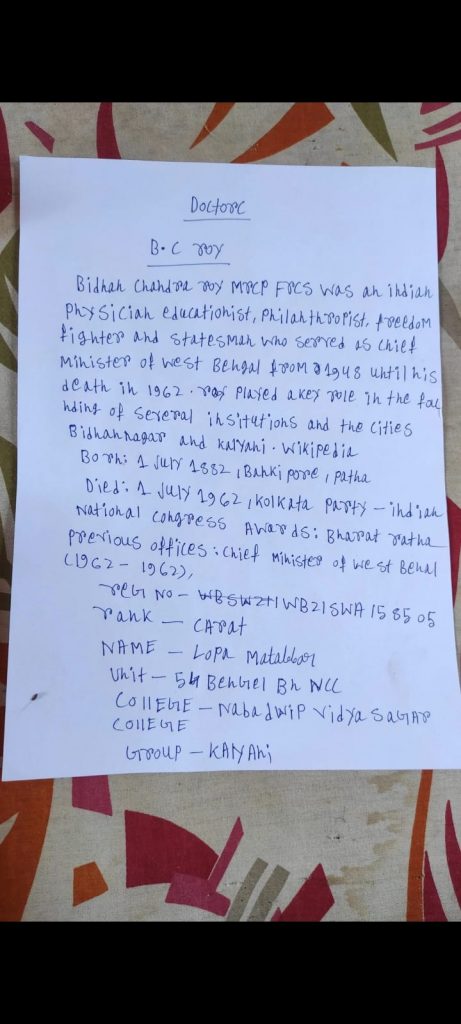 Doctore
B.C roy
Bidhan Chandra roy MRCP FRCS was an indian
Physician educationist, Philanthropist, freedom
fighter and statesman who served as chief
Minister of west Bengal from 1948 until his
death in 1962. roy played a key role in the fou
nding of several insitutions and the cities
Bidhannagar and kalyani. wikipedia
Born: 1 July 1882, Bankipore, patna
Died: 1 July 1962, kolkata Party - indian
National congress Awards: Bharat ratna
previous offices: chief Minister of west Benal
(1962 - 1962),
reg No - WBSW211 WB21SWA158505
rank - CArat
NAME - Lopa Matabbar
Unit - 54 Bengel Bn NCC
COllEGE - Nabadwip Vidya SAGAR
COllEGE
Group - KAlyAni